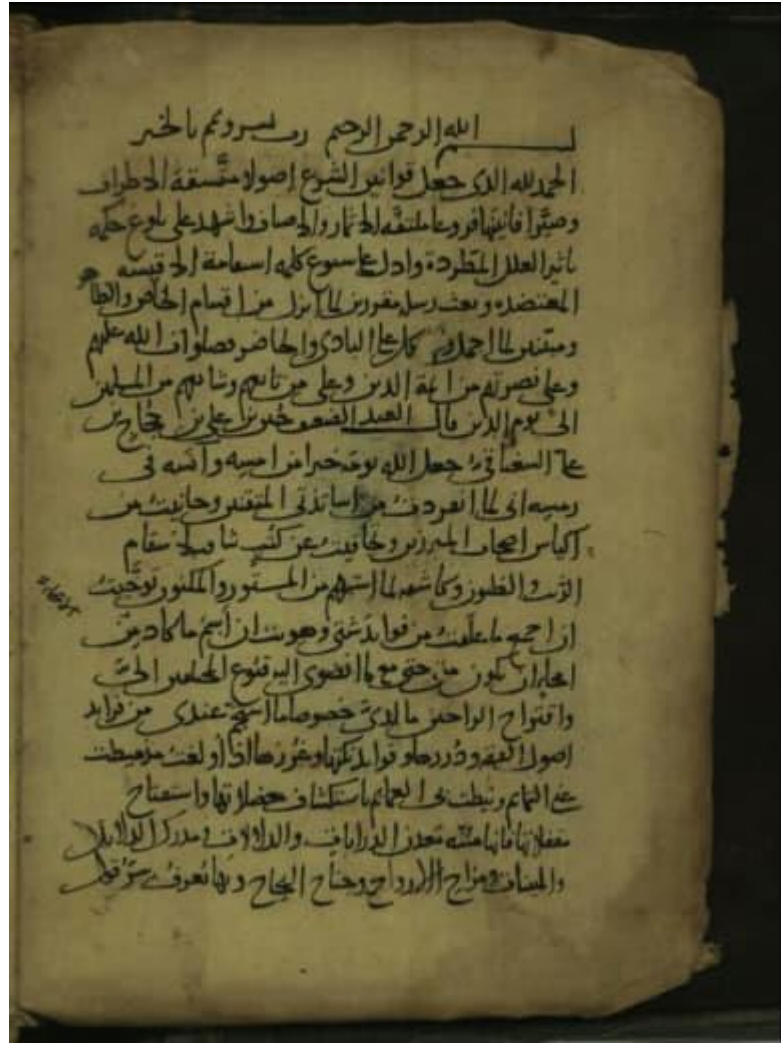 بسم الله الرحمن الرحيم رب يسر وتمم بالخير
الحمد لله الذى جعل قوانين الشرع اصولا متسقة الاطراف
وصير افانينها فروعا ملتفة الاثمار والاصناف واشهد على بلوغ حكمه
تاثير العلل المطردة وادل على سبوغ كلمه استقامة الاقيسه
المعتضده وبعث رسله مقررين لما انزل من اقسام الخاص والظاهر
ومبينين لما على البادى والحاضر فصلوات الله عليهم
وعلى نصرتهم من ائمة الدين وعلى من تابعهم وشايعهم من المسلمين
الى يوم الدين قال العبد الضعيف حسين بن على بن حجاج بن
على السغناقى جعل الله يومه خيرا من امسه وانسه فى
رمسه انى لما انفردت من اساتذتى المتقنين وجانبت من
اكياس اصحاب المبرزين وتجافيت عن كتب شافية لسقام
الريب والظنون وكاشفة لما استبهم من المستور والمكنون توخيت
ان اجمع ما علقت من فوائد شتى وهويت ان ما كاد من
ان يكون من مع ما انضوى اليه المجلس
واقتراح الراحين ما لدى خصوصا ما عندى من فرايد
اصول الفقه ودررها وفوايد نكتها وغررها اذ اولعت مذ ميطت
عنى التمايم ونيطت بى العمايم باستكشاف معضلاتها واستفتاح
مقفلاتها فانها مئنة معدن الدرايات والدلالات ومدرك الدلايل
والبينات ومزاج الارواح وجناح النجاح وبها تعرف